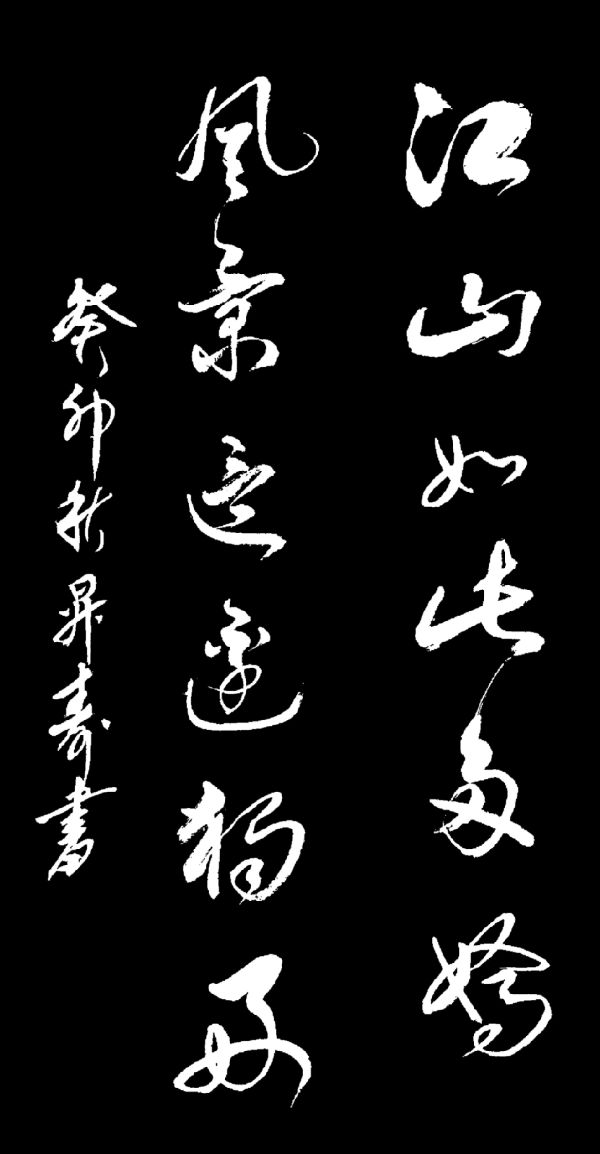 江山如此多嬌
風景這邊獨好
癸卯秋昇寿書